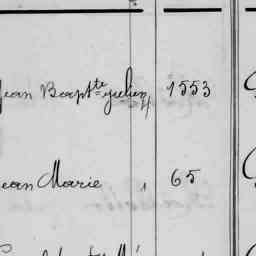 Jean Bapt^te Julien 1553
Jean Marie 65